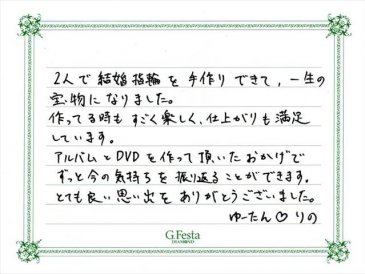 2人で結婚指輪を手作りできて、一生の
宝物になりました。
作ってる時もすごく楽しく、仕上がりも満足
しています。
アルバムとDVDを作って頂いたおかげで
ずっと今の気持ちを振り返ることができます。
とても良い思い出をありがとうございました。
ゆーたん♡りの
G.Festa
DIAMOND